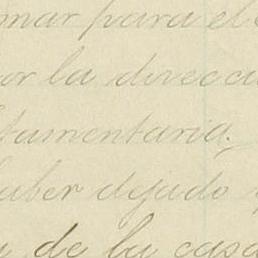 mar para el
or la direcci
tamentaria.
haber dejado
de la casa